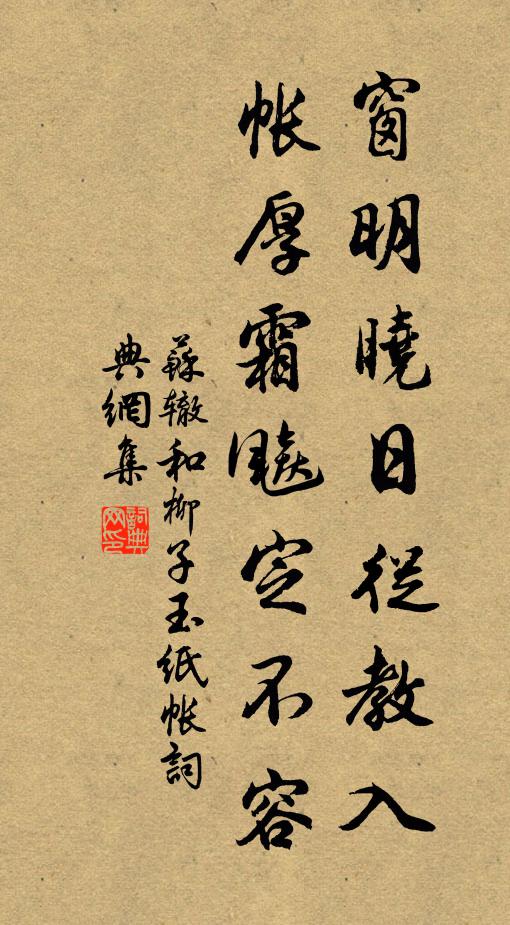 窗明曉日從教入
帳厚霜飈定不容
蘇辙和柳子玉紙帳詞
典網集
詞典
网印